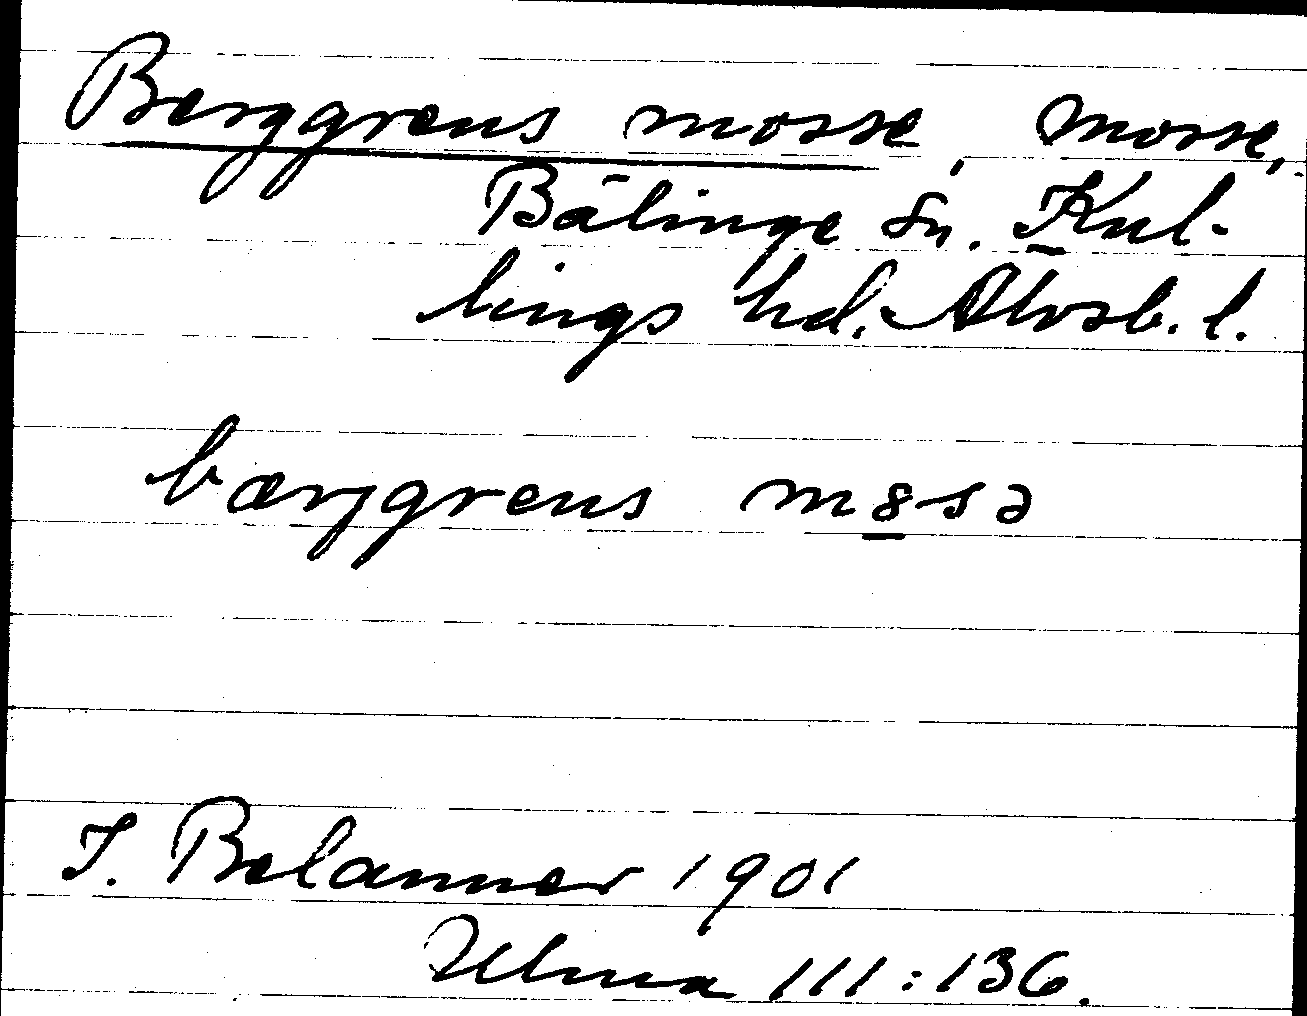 Berggrens mosse, mosse,
Bälinge sn. Kul-
lings hd. Älvsb. l.
bærjgrens m8sə
I. Belanner 1901
Ulma 111:136.